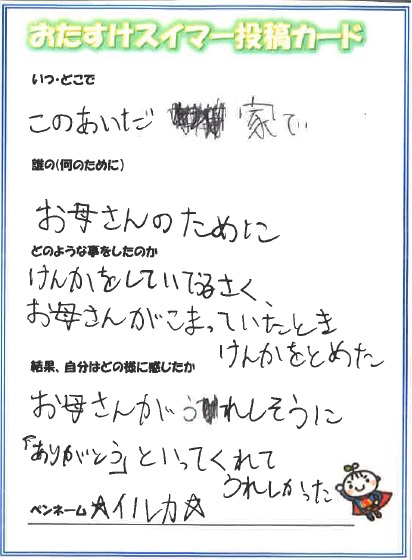 おたすけスイマー投稿カード
いつ・どこで
このあいだ 家で
誰の(何のために)
お母さんのために
どのような事をしたのか
けんかをしていてうるさく、
お母さんがこまっていたとき
けんかをとめた
結果、自分はどの様に感じたか
お母さんが うれしそうに
「ありがとう」といってくれて
うれしかった
ペンネーム ☆イルカ☆